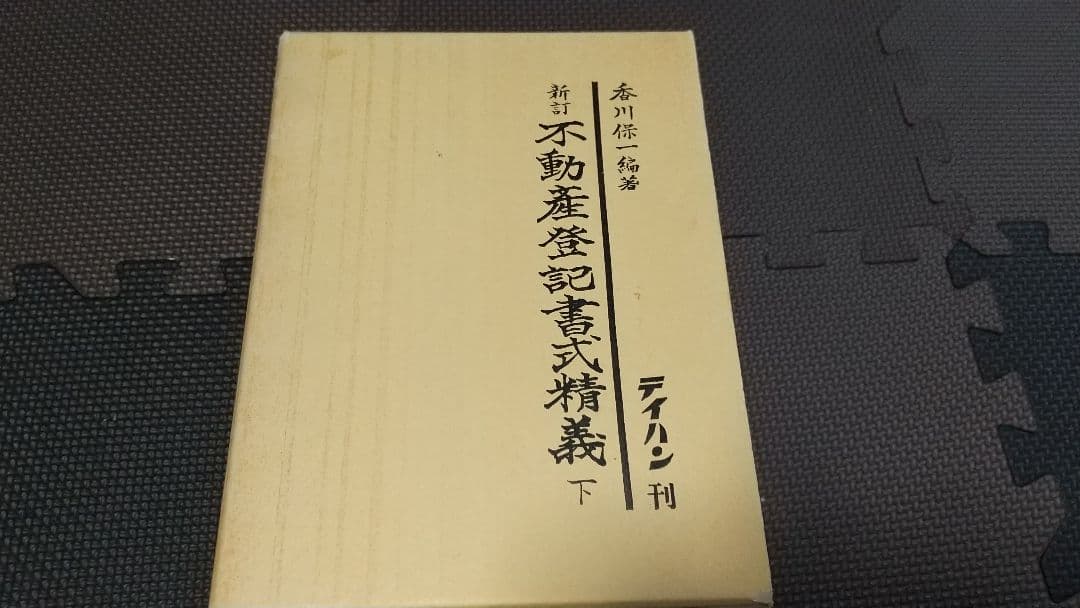 香川保一編著
新訂 不動産登記書式精義 下
テイハン刊